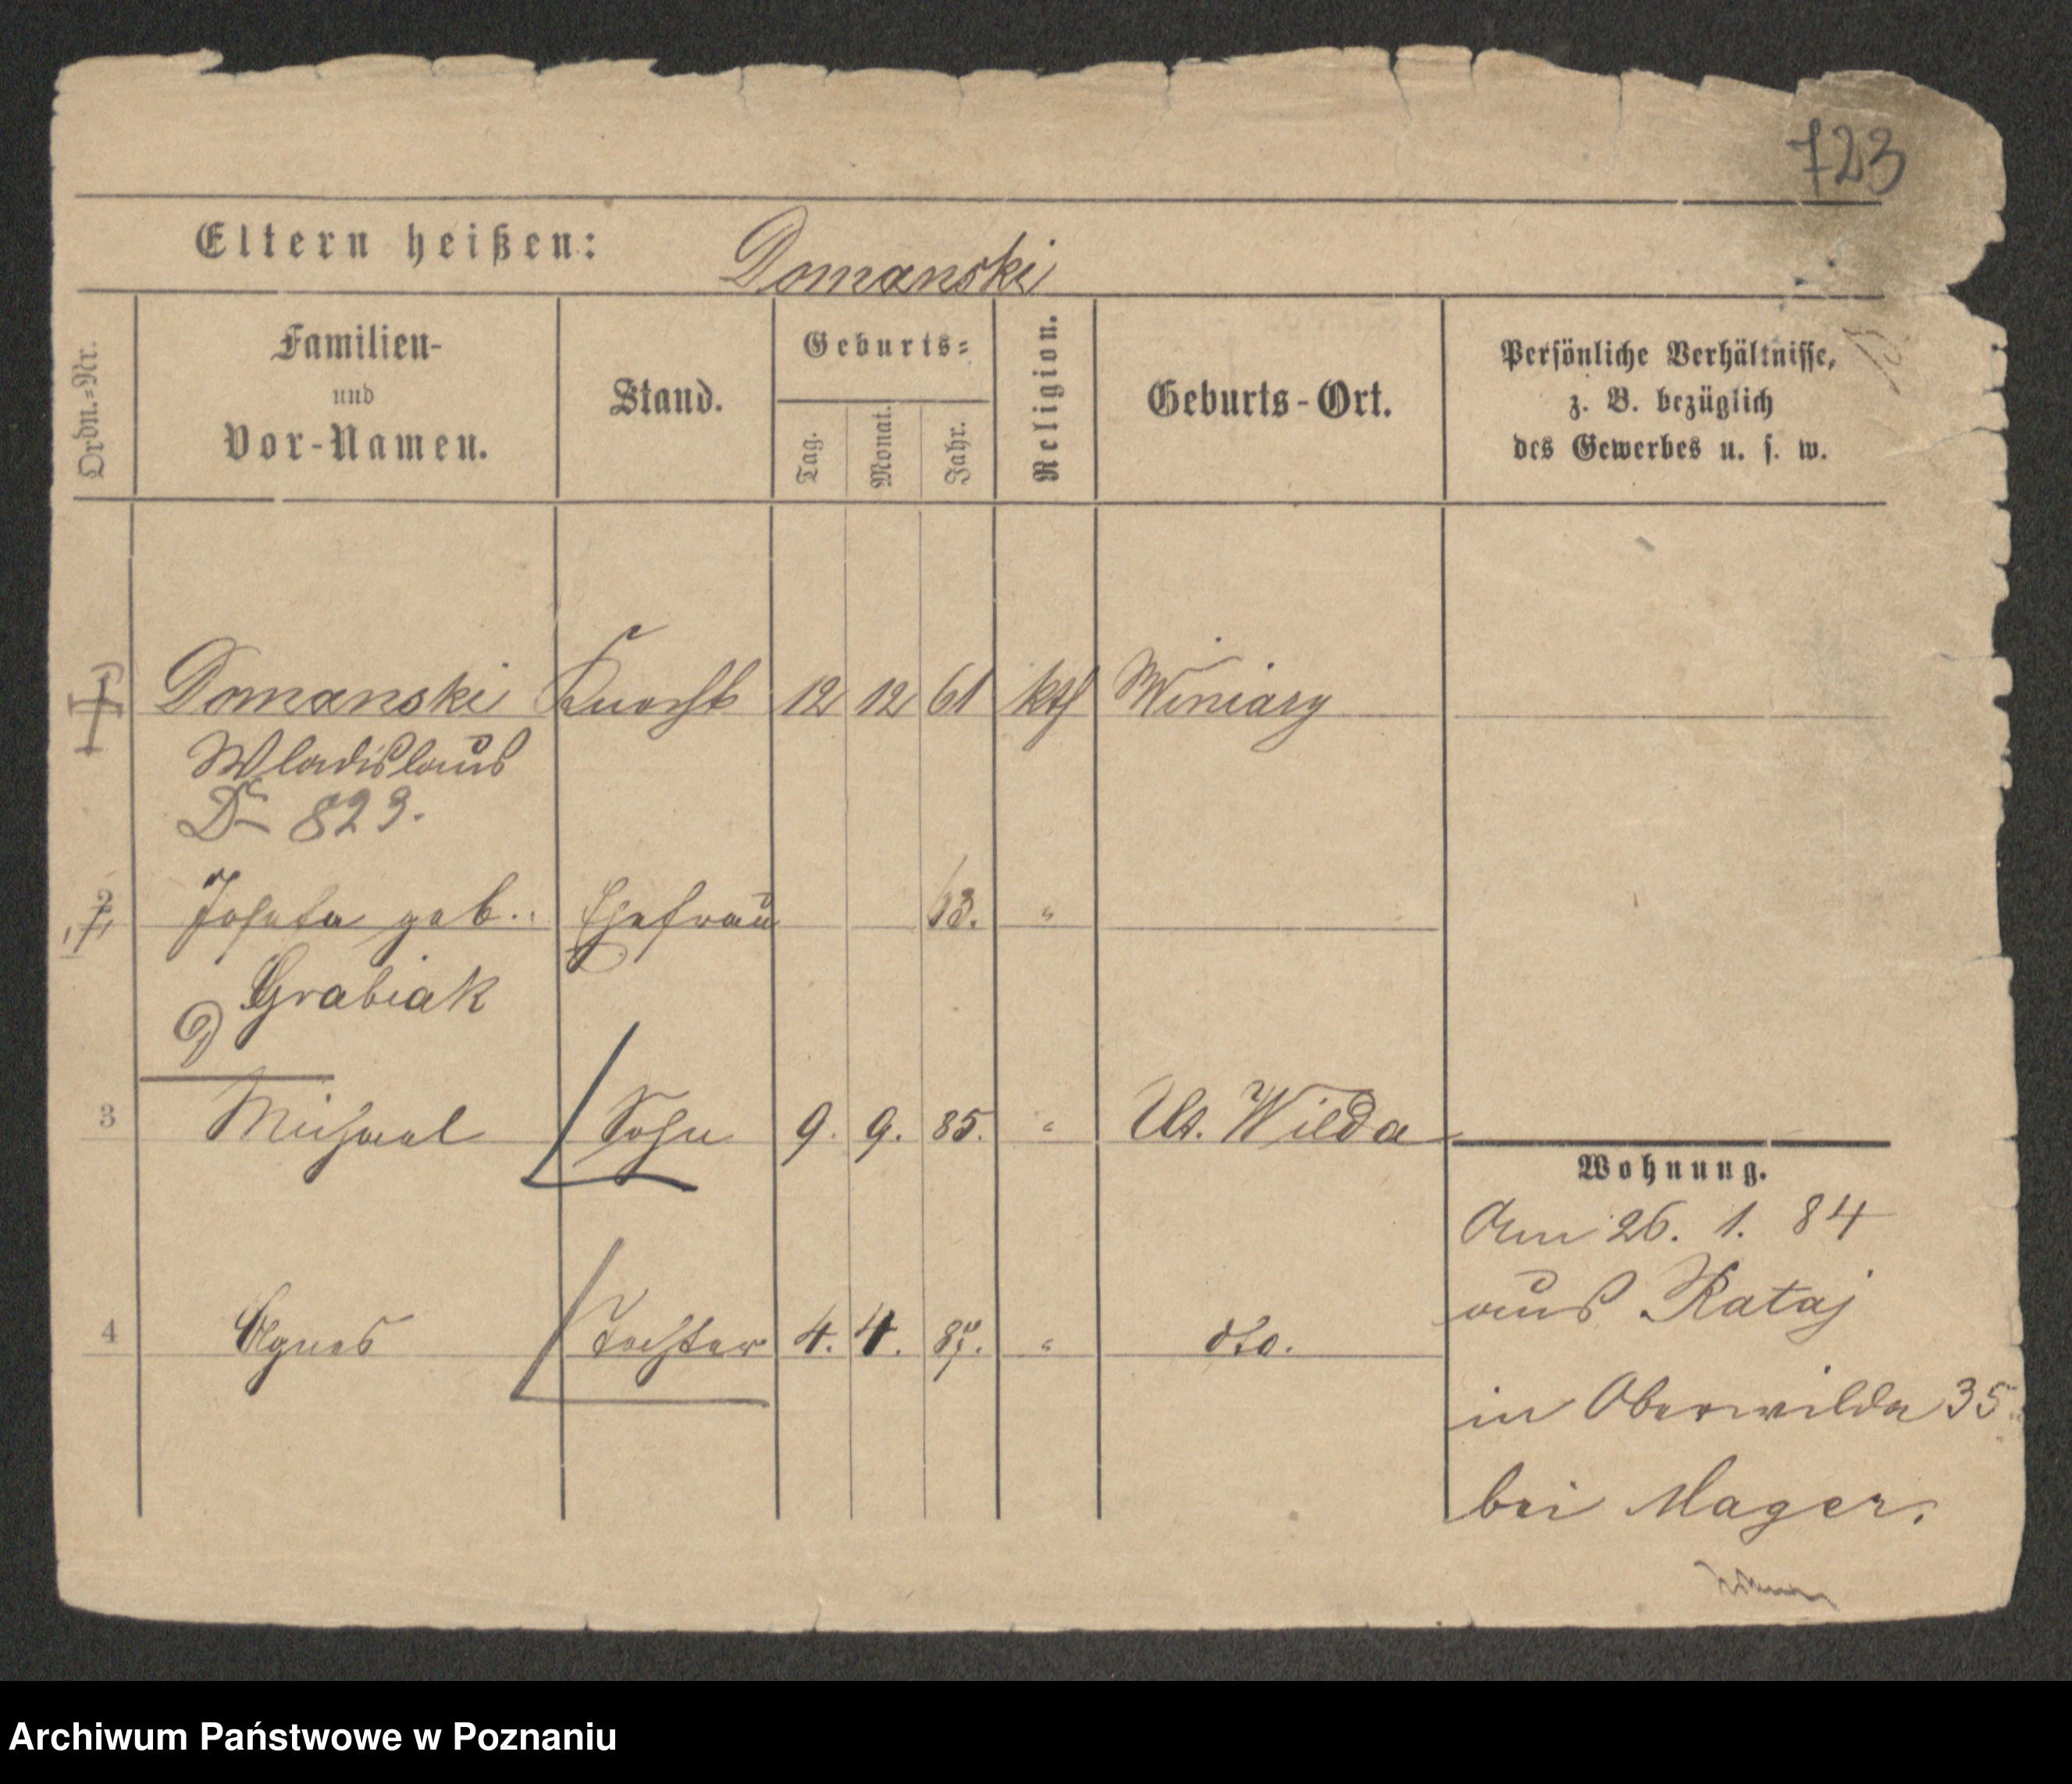 723
Eltern heißen: Domanski
Ordn.=Nr.
Familien-
und
Vor-Namen.
Stand.
Geburts=
Tag.
Monat.
Jahr.
Religion.
Geburts-Ort.
Persönliche Verhältnisse,
z. B. bezüglich
des Gewerbes u. s. w.
Domanski Knecht 12 12 61 kth Winiary
Wladislaus
D- 823.
2 Josefa geb. Ehefrau 63. "
Grabiak
3 Michael Sohn 9. 9. 85. " Ut. Wilda
4 Agnes Tochter 4. 4. 87. " dto.
Wohnung.
Am 26. 1. 84
aus Rataj
in Oberwilda 35
bei Mager.
Archiwum Państwowe w Poznaniu